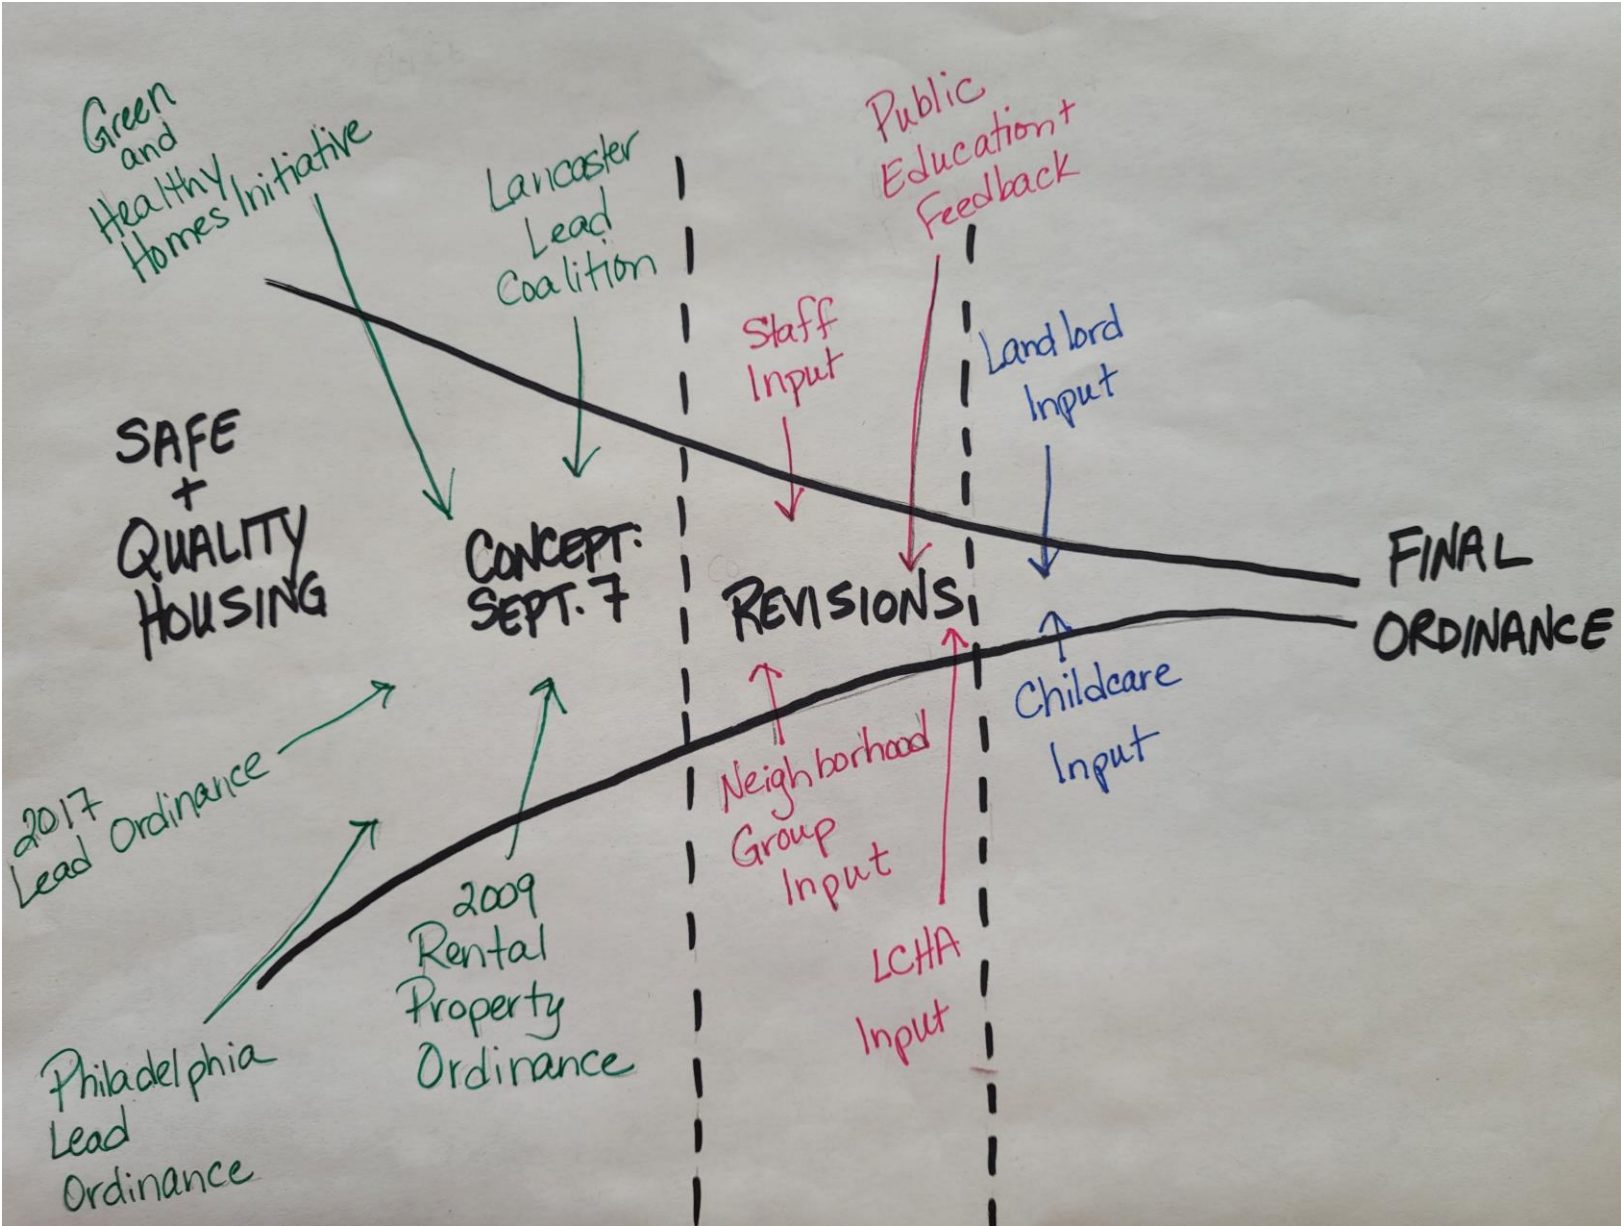 Green
and
Healthy
Homes Initiative
Lancaster
Lead
Coalition
Public
Education +
Feedback
Staff
Input
Landlord
Input
SAFE
+
QUALITY
HOUSING
CONCEPT:
SEPT. 7
REVISIONS
FINAL
ORDINANCE
2017
Lead Ordinance
Philadelphia
Lead
Ordinance
2009
Rental
Property
Ordinance
Neighborhood
Group
Input
LCHA
Input
Childcare
Input